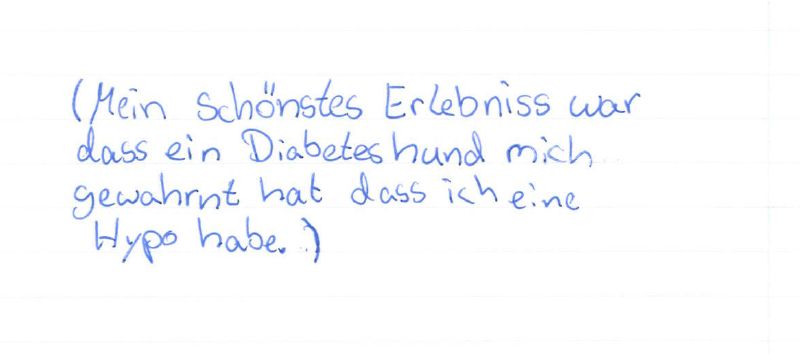 (Mein schönstes Erlebniss war
dass ein Diabeteshund mich
gewahrnt hat dass ich eine
Hypo habe.)